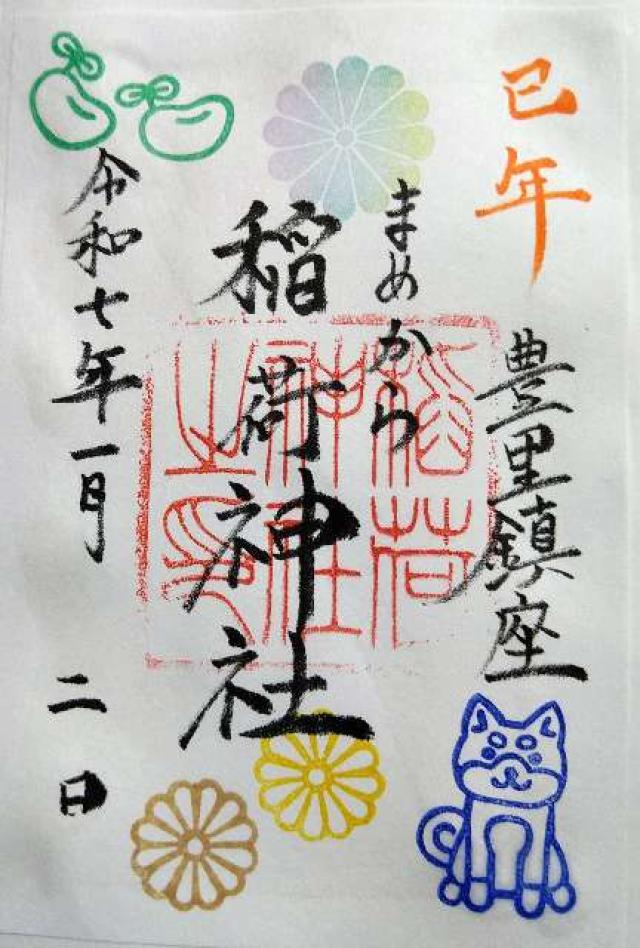 巳年
豊里鎮座
まめから
稲荷神社
稲荷
神社
之印
令和七年一月二日